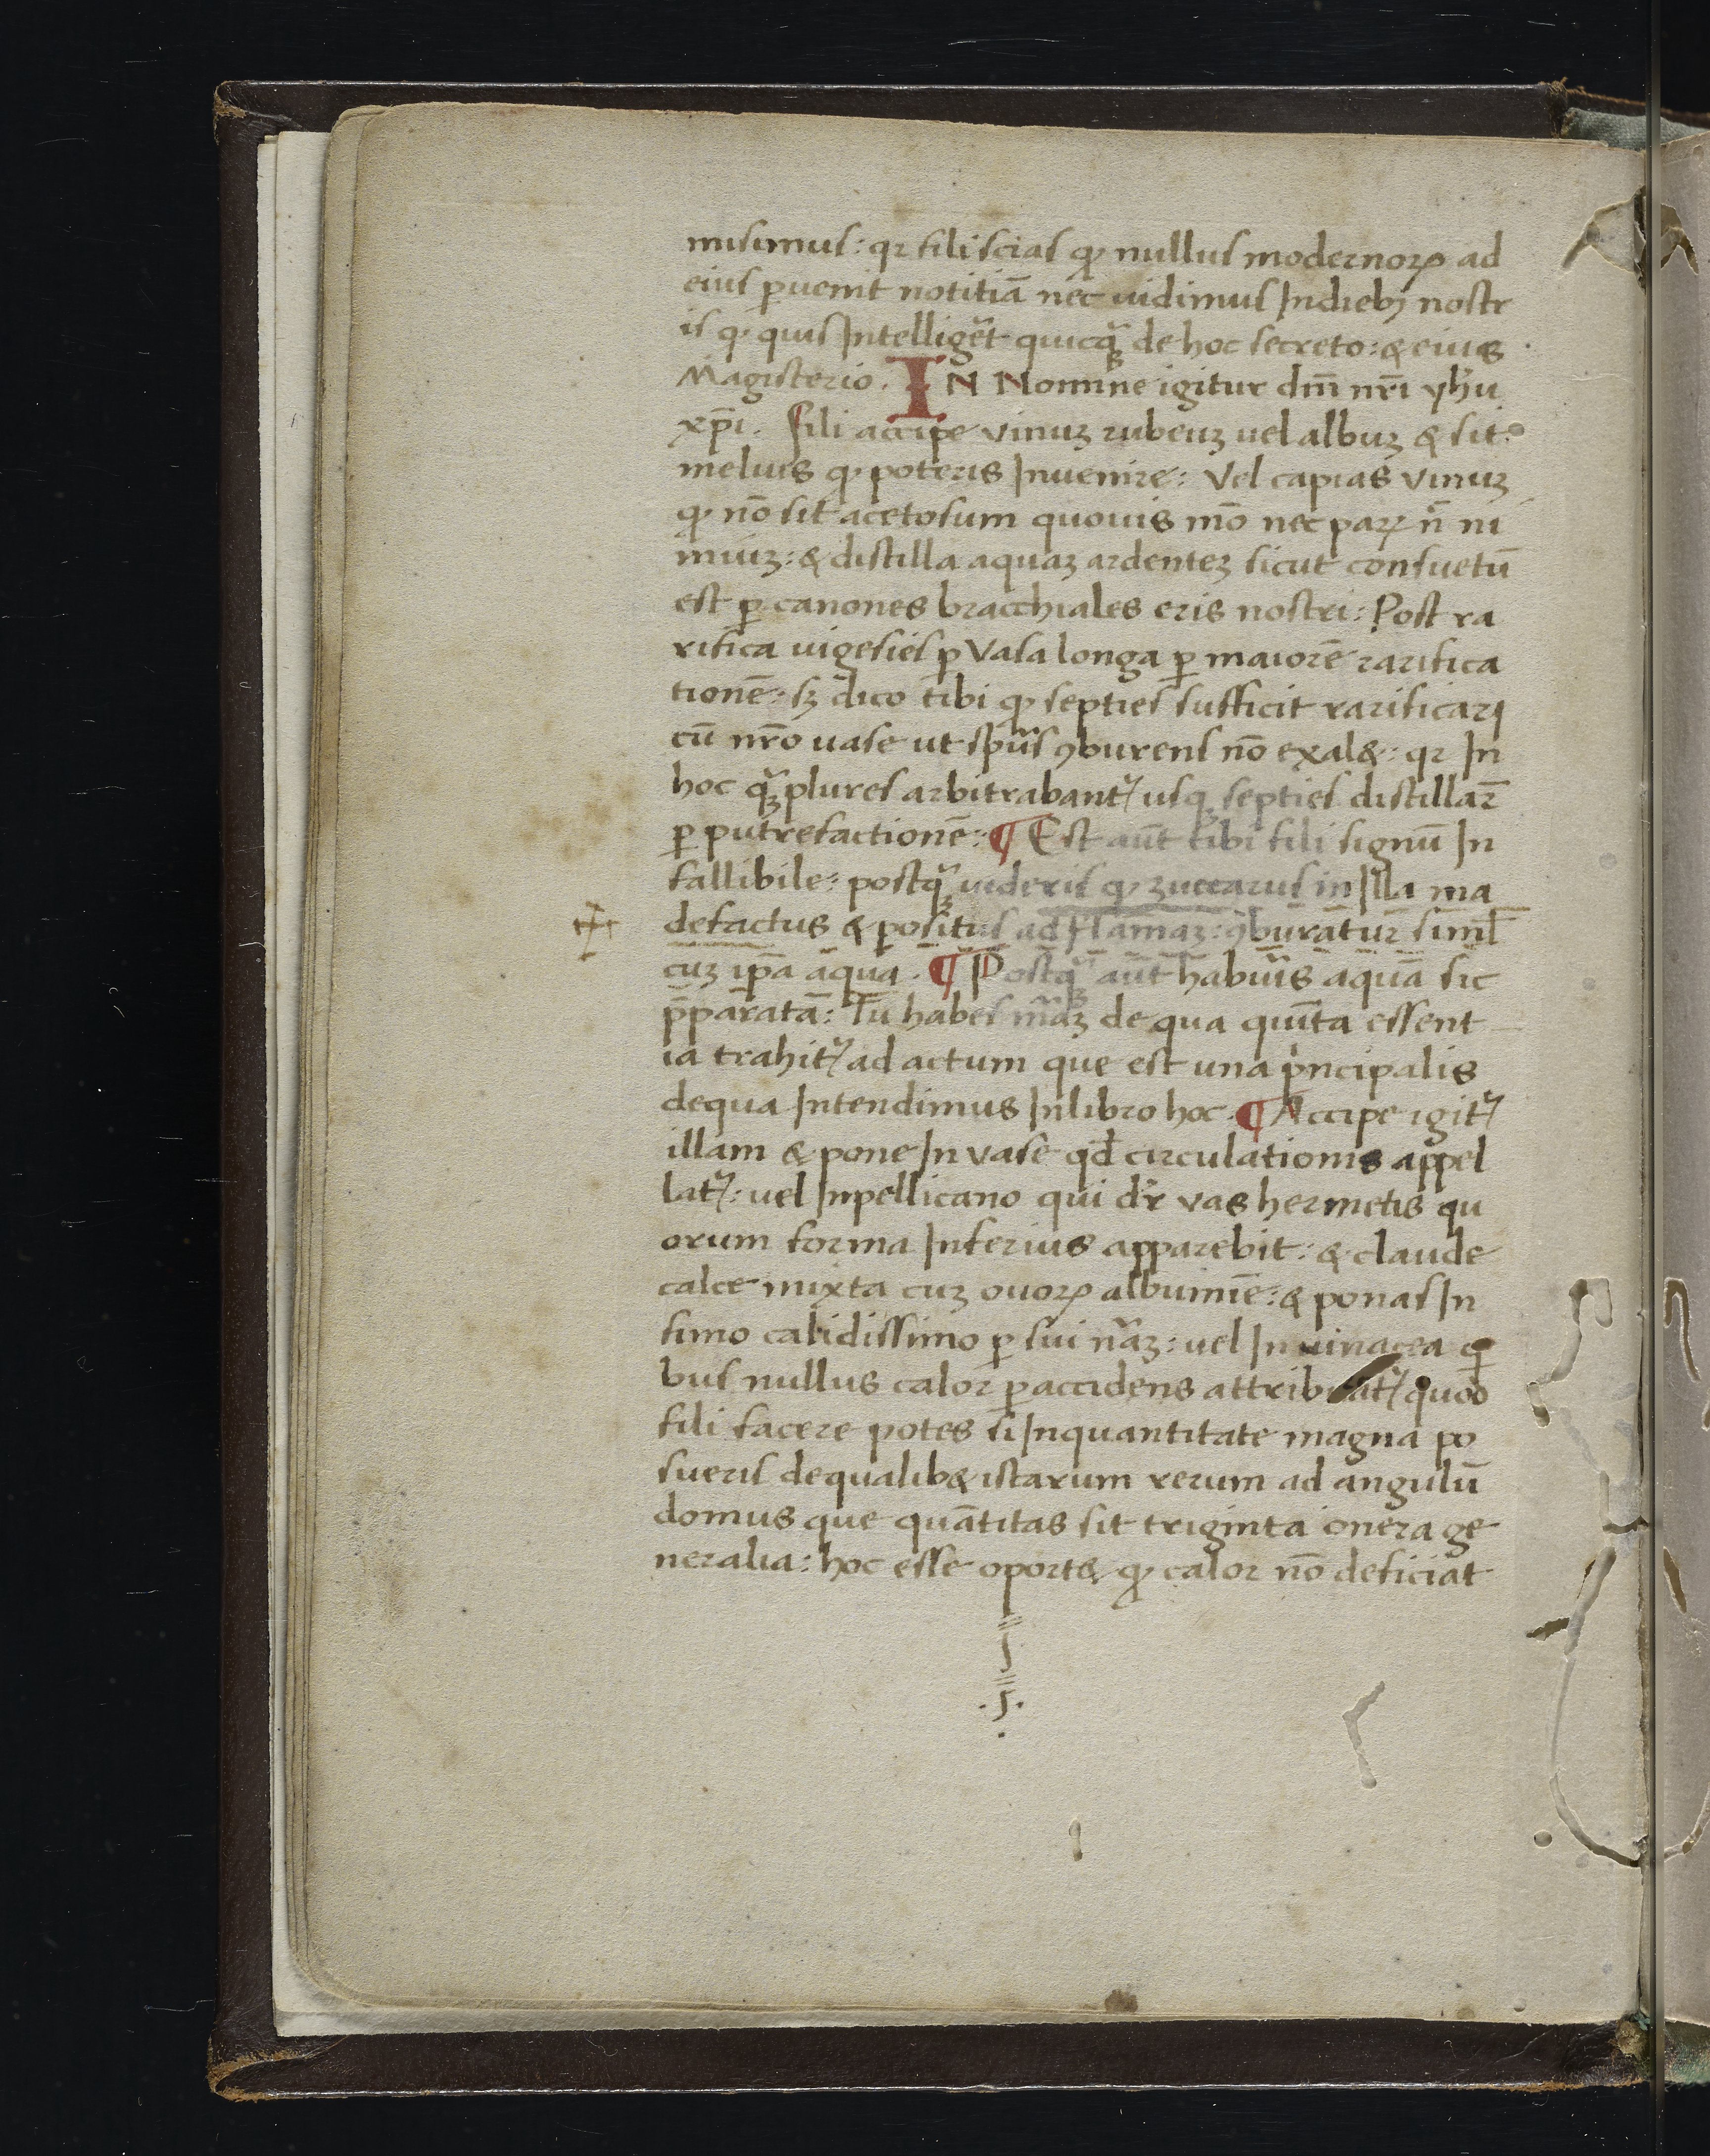 misimus: qr fili scias ꝙ nullus modernoꝝ ad
eius ꝑuenit notitiā nec uidimus Indiebꝫ nostr
is ꝙ quis Intelligēt quicqᷓꝫ de hoc secreto: & eius
Magisterio. IN Nomine igitur dm̄ nr̄i yħu
xp̄i. Fili accipe vinuꝫ rubeuꝫ uel albuꝫ & sit
melius ꝙ poteris Inuenire: Vel capias vinuꝫ
ꝙ nō sit acetosum quouis mō nec paꝝ n̄ ni
miuꝫ: & distilla aquaꝫ ardenteꝫ sicut consuetū
est ꝑ canones bracchiales eris nostri: Post ra
rifica uigesies ꝑ Vasa longa ꝑ maiorē rarifica
tionē: sꝫ dico tibi ꝙ septies sufficit rarificari
cū nr̄o uase ut sp̄us ꝯburens nō exal&: qr In
hoc qᷓꝫplures arbitrabant᷑ usqꝫ septies distillar̄
ꝑ putrefactionē: ¶ Est aūt tibi fili signū In
fallibile: postqᷓꝫ uideris ꝙ zuccarus in Illa ma
defactus & positus ad flamaꝫ: ꝯburatur siml̄
cuꝫ ip̄a aqua. ¶ Postqᷓꝫ aūt habuīs aquā sic
p̄paratā: Tu habes mᷓaꝫ de qua quīta essent
ia trahit᷑ ad actum que est una pͥncipalis
dequa Intendimus Inlibro hoc. ¶ Accipe igit᷑
illam & pone In vase qd̄ circulationis appel
lat᷑: uel Inpellicano qui dr̄ vas hermetis qu
orum forma Inferius apparebit: & claude
calce mixta cuꝫ ovoꝝ albumīe: & ponas In
fimo calidissimo ꝑ sui nᷓaꝫ: uel In uinacea qͥ
bus nullus calor ꝑaccidens attribuat᷑ quod
fili facere potes si Inquantitate magna po
sueris dequalib& istarum rerum ad angulū
domus que quātitas sit triginta onera ge
neralia: hoc esse oport& ꝙ calor nō deficiat